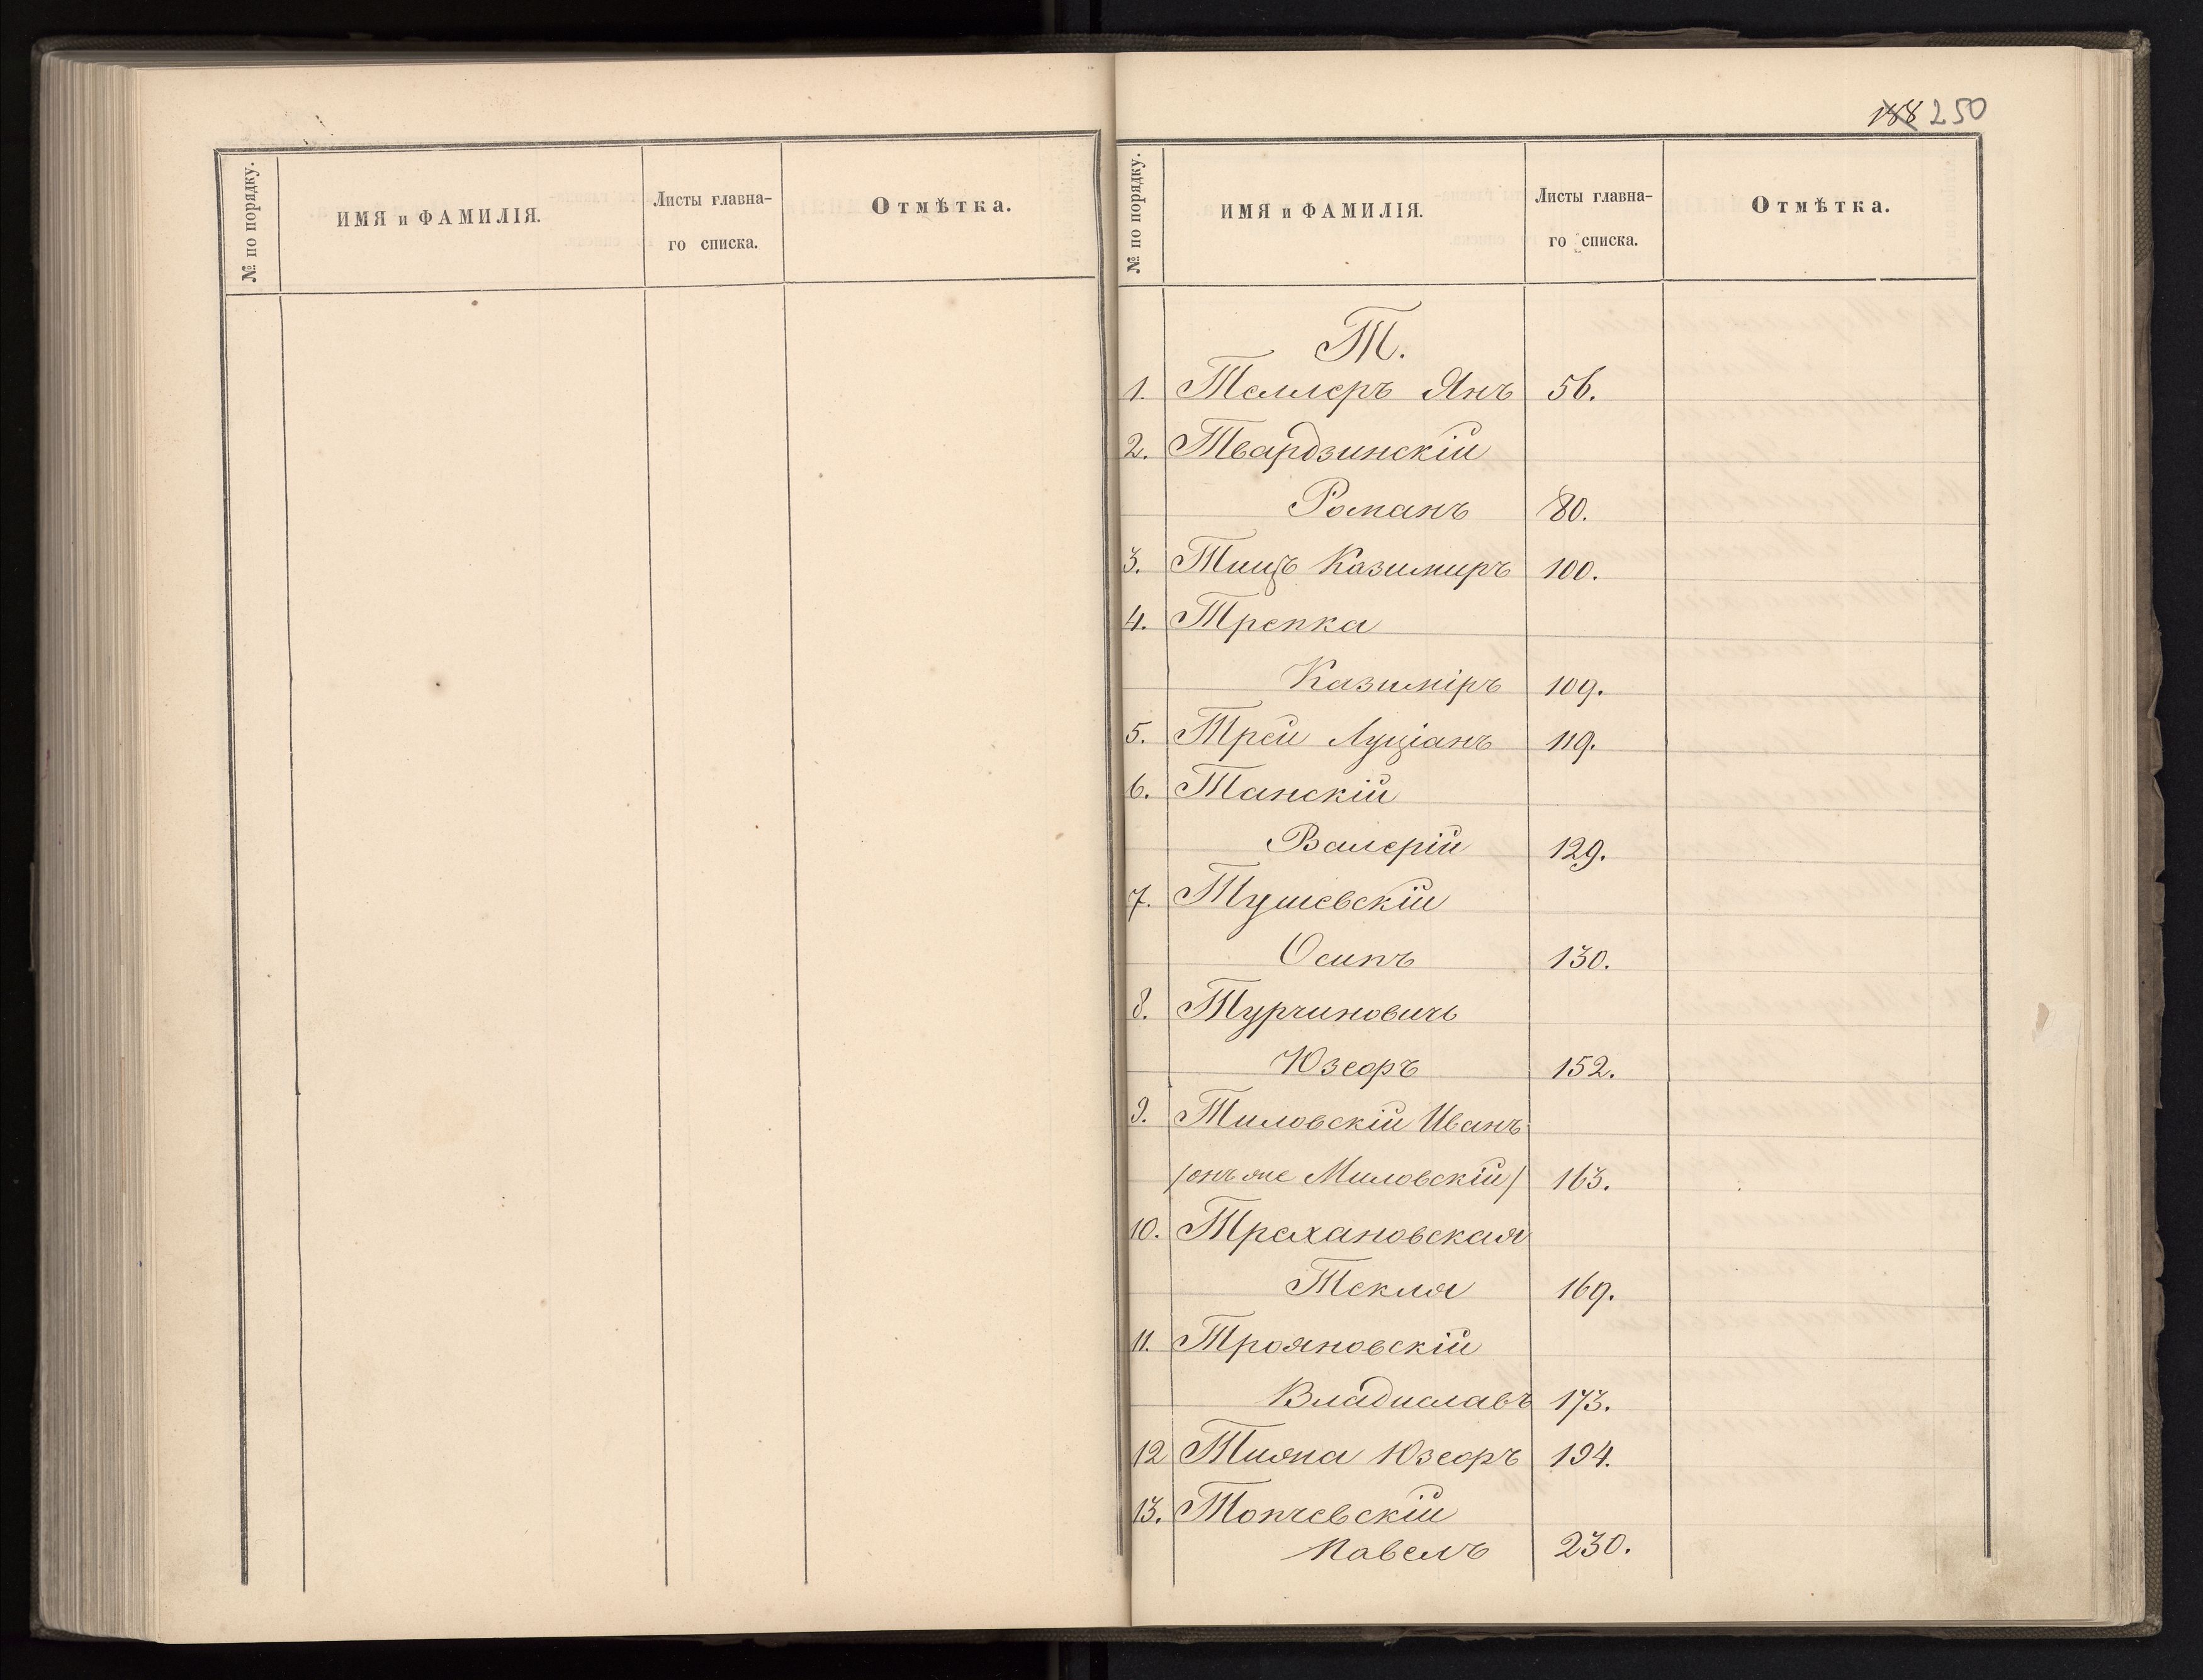 188 250
№ по порядку.
ИМЯ и ФАМИЛІЯ.
Листы главна-
го списка.
Отмѣтка.
№ по порядку.
ИМЯ и ФАМИЛІЯ.
Листы главна-
го списка.
Отмѣтка.
Т.
1. Теллеръ Янъ 56.
2. Твардзинскій
Романъ 80.
3. Тицъ Казимиръ 100.
4. Трепка
Казиміръ 109.
5. Трей Луціанъ 119.
6. Танскій
Валерій 129.
7. Тушевскій
Осипъ 130.
8. Турчиновичъ
Юзефъ 152.
9. Тиловскій Иванъ
/онъ же Миловскій/ 163.
10. Трехановская
Текля 169.
11. Трояновскій
Владиславъ 173.
12 Юзефъ 194.
13. Топчевскій
Павелъ 230.